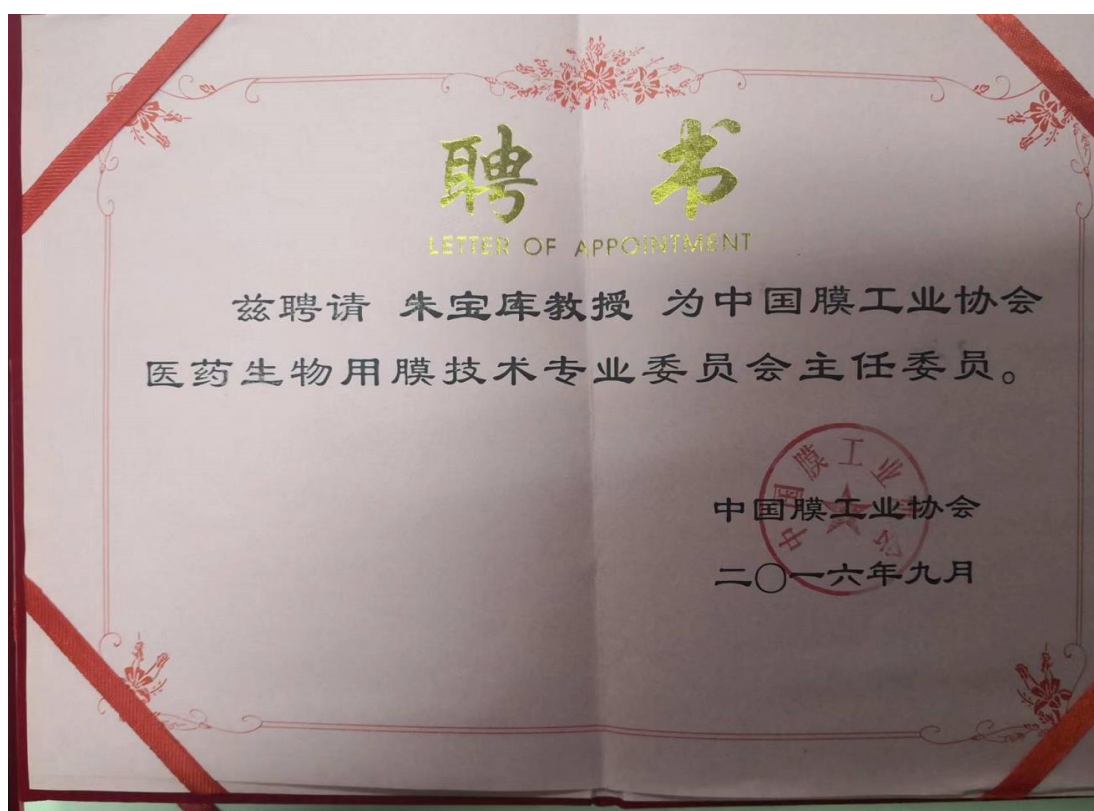 聘 书
LETTER OF APPOINTMENT
兹聘请 朱宝库教授 为中国膜工业协会
医药生物用膜技术专业委员会主任委员。
中国膜工业协会
中国膜工业协会
二〇一六年九月